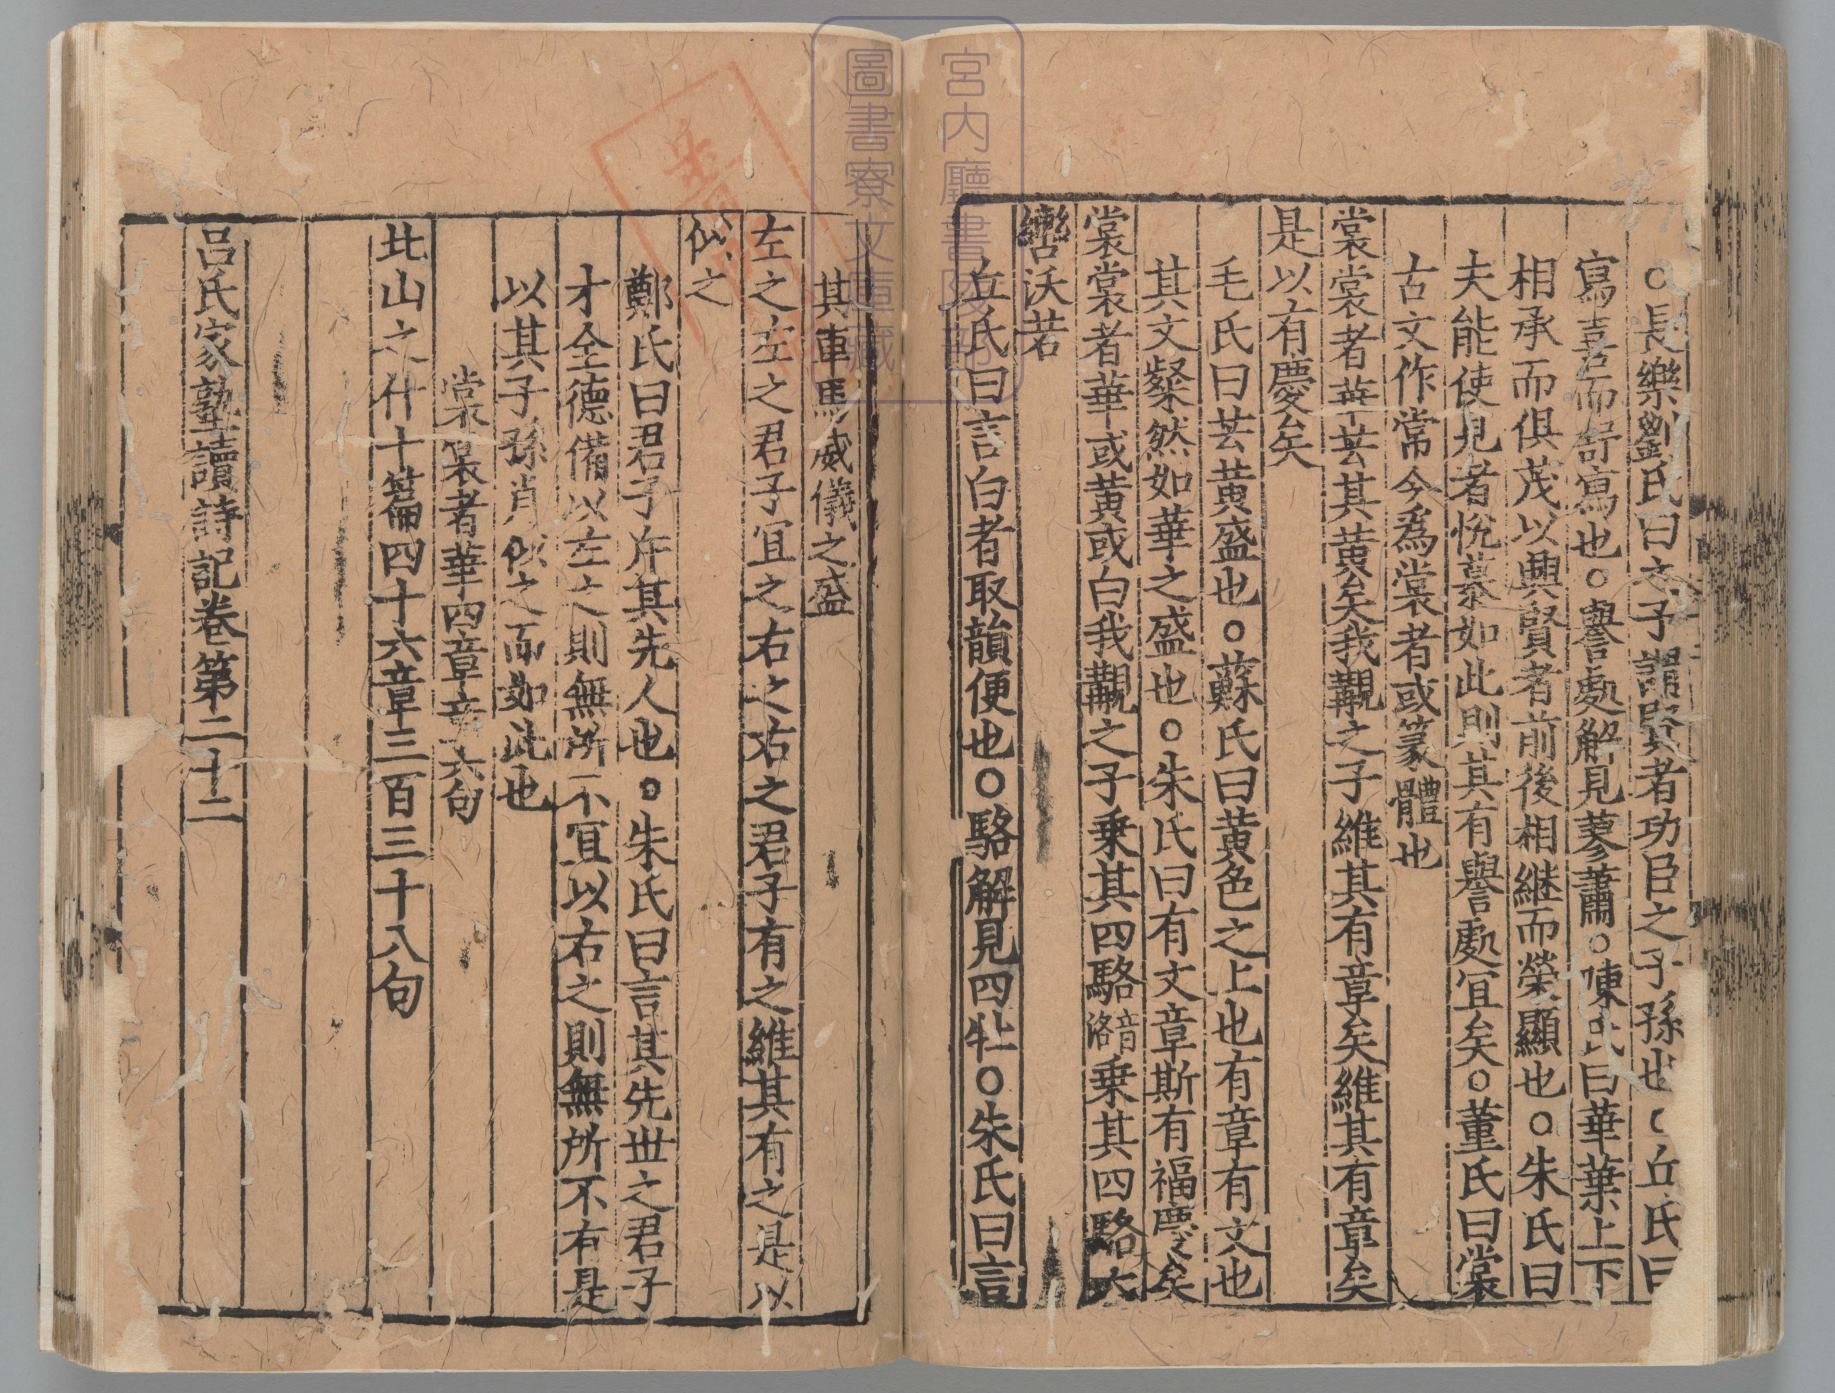 ○長樂劉氏曰之子謂賢者功臣之子孫也○丘氏曰
寫喜而舒寫也○譽處解見蓼蕭○陳氏曰華葉上下
相承而俱茂以興賢者前後相継而榮顯也○朱氏曰
夫能使見者悅慕如此則其有譽處宜矣○董氏曰裳
古文作常今爲裳者或篆體也
裳裳者華芸其黃矣我覯之子維其有章矣維其有章矣
是以有慶矣
毛氏曰芸黃盛也○蘇氏曰黃色之上也有章有文也
其文粲然如華之盛也○朱氏曰有文章斯有福慶矣
裳裳者華或黃或白我覯之子乗其四駱音洛乗其四駱六
轡沃若
丘氏曰言白者取韻便也○駱解見四牡○朱氏曰言
其車馬威儀之盛
左之左之君子宜之右之右之君子有之維其有之是以
似之
鄭氏曰君子斥其先人也○朱氏曰言其先世之君子
才全德備以左之則無所不宜以右之則無所不有是
以其子孫肖似之而如此也
裳裳者華四章章六句
北山之什十篇四十六章三百三十八句
呂氏家塾讀詩記卷第二十二
宮内廳書陵部
圖書寮文庫藏